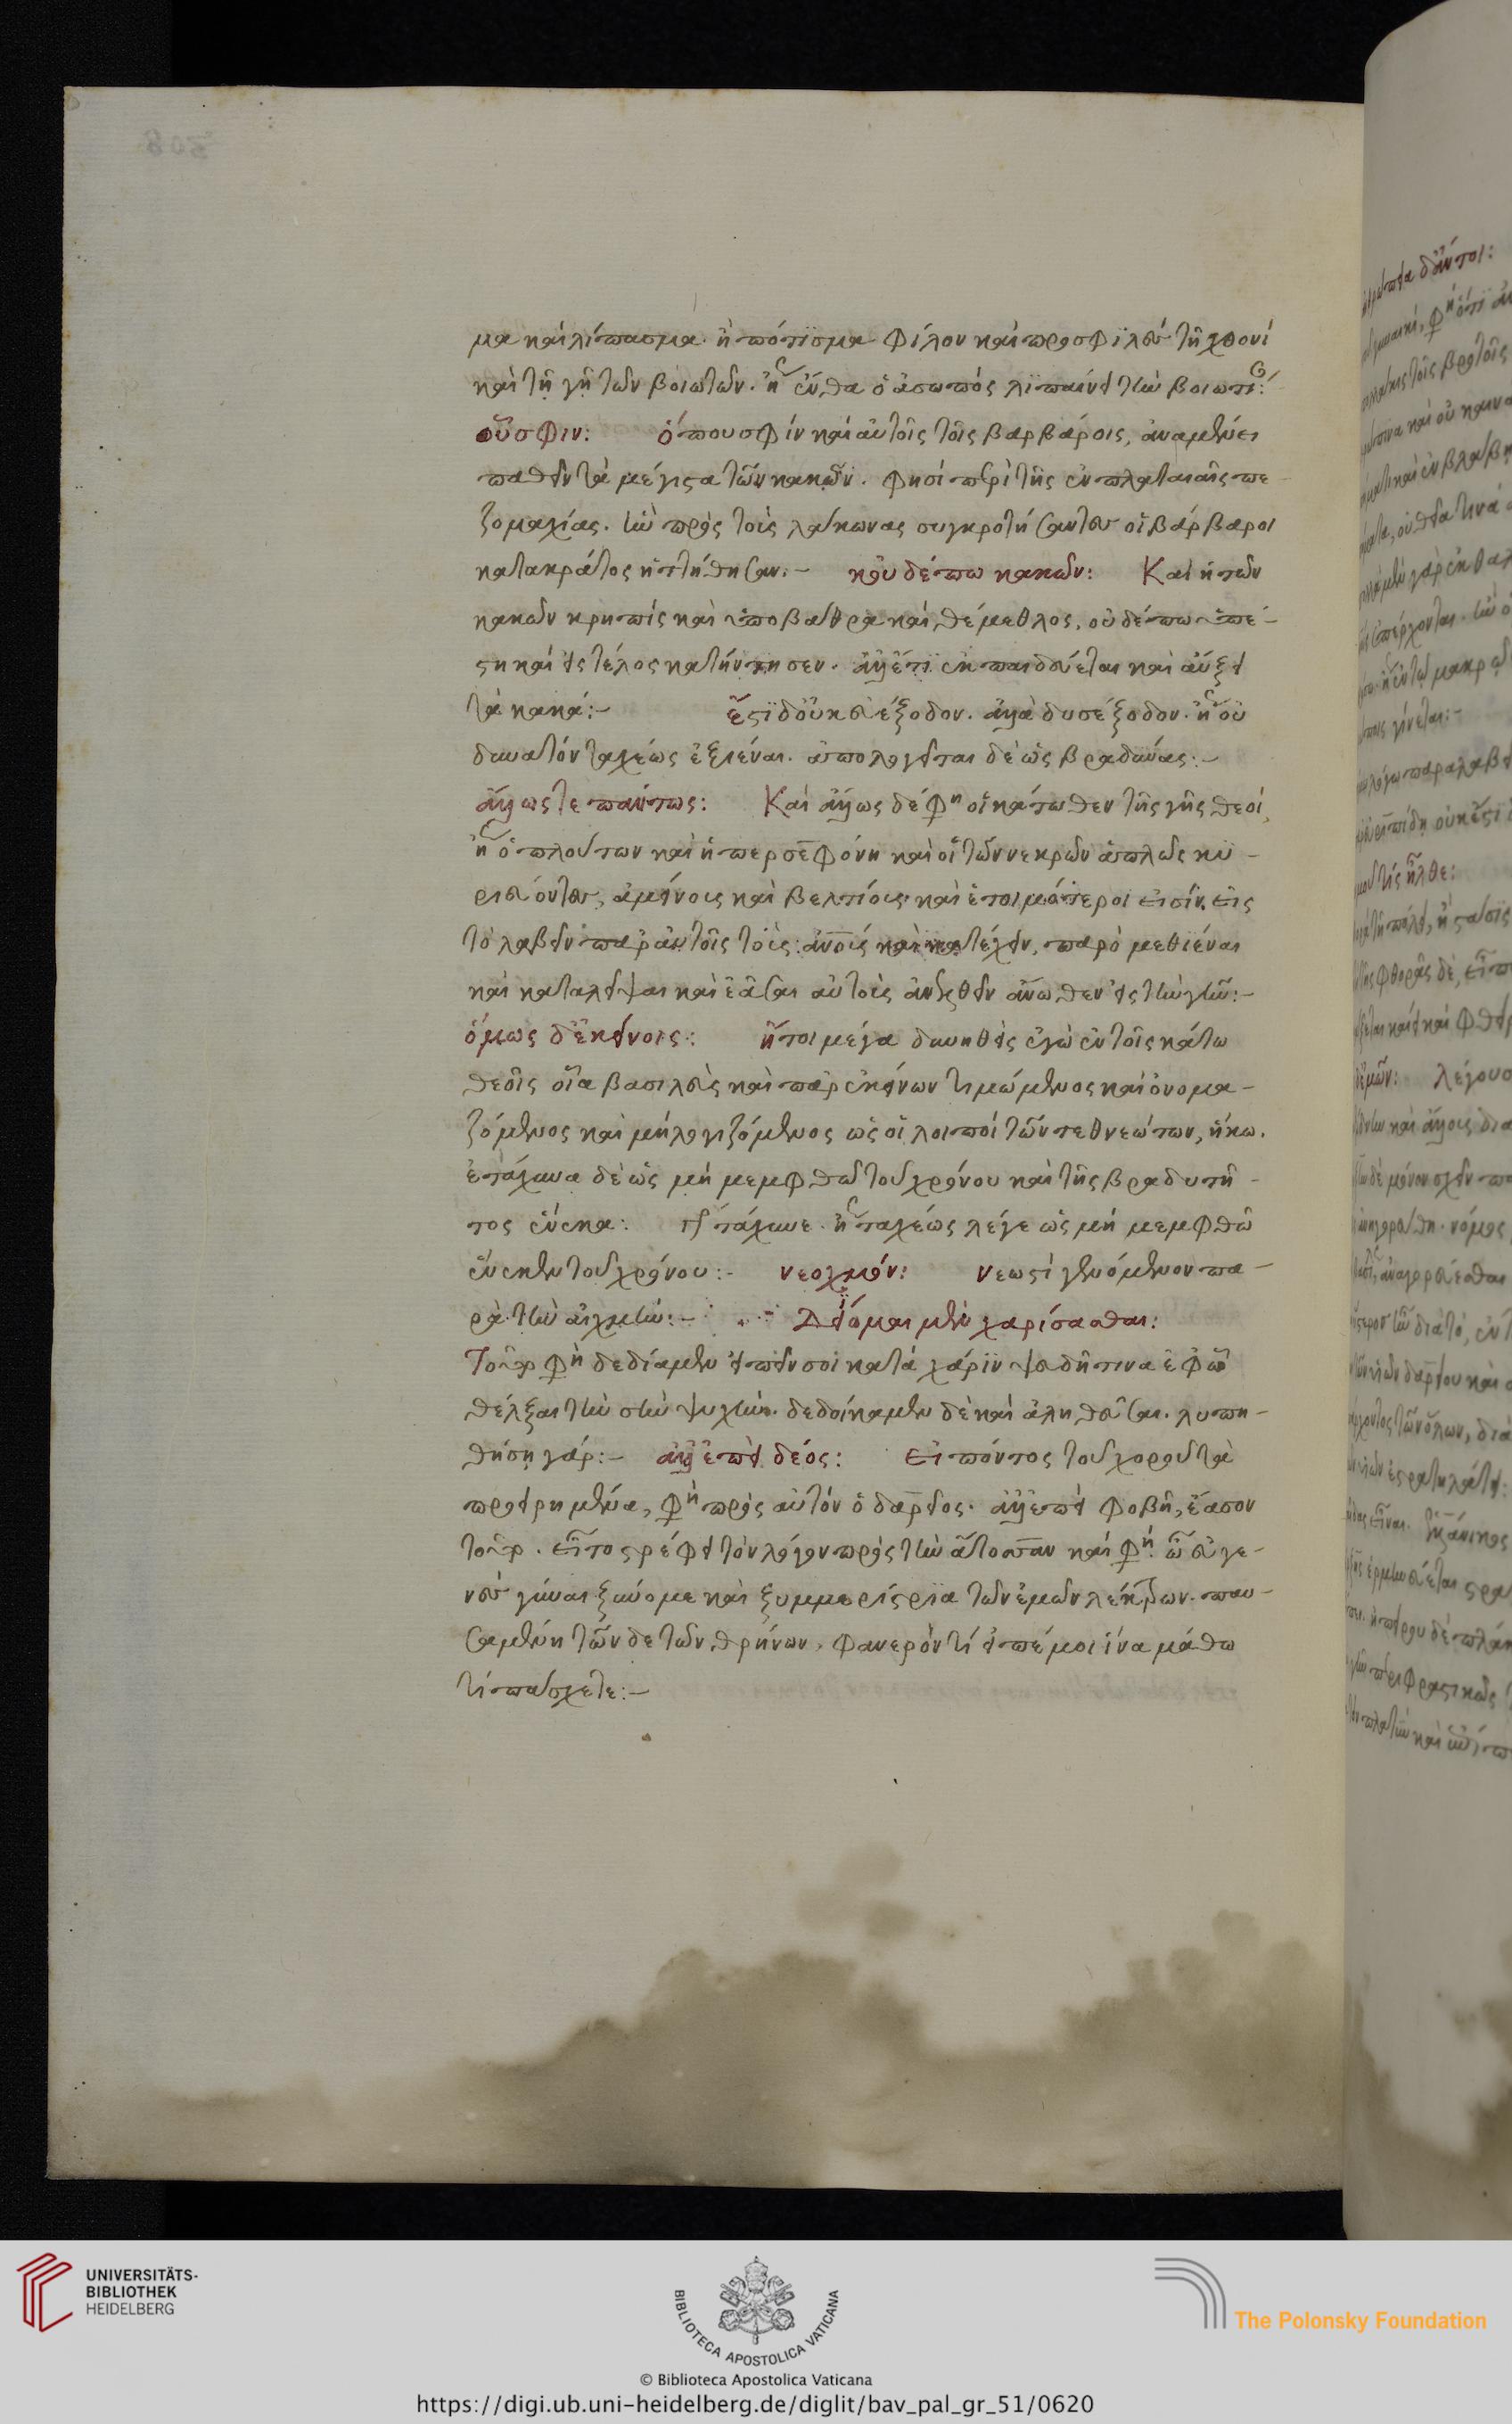 μα καὶ λίπασμα. ἢ πότισμα φίλον καὶ προσφιλὲς τῇ χθονὶ
καὶ τῇ γῇ τῶν βοιωτῶν. ἢ ἔνθα ὁ ἀσωπὸς λιπαίνει τὴν βοιωτί:
οὗ σφιν: ὅπου σφὶν καὶ αὐτοῖς τοῖς βαρβάροις, ἀναμένει
παθεῖν τὰ μέγιστα τῶν κακῶν. φησὶ περὶ τῆς ἐν πλαταιαῖς πε-
ζομαχίας. ἣν πρὸς τοὺς λάκωνας συγκροτήσαντες οἱ βάρβαροι
κατακράτος ἡττήθησαν:- κοὐδέπω κακῶν: Καὶ ἡ τῶν
κακῶν κρηπὶς καὶ ὑποβάθρα καὶ θέμεθλος, οὐδέπω ὑπέ-
στη καὶ εἰς τέλος κατήντησεν. ἀλλ' ἔτι ἐκπαιδεύεται καὶ αὔξει
τὰ κακά:- ἔστι δ' οὐκ εὐέξοδον. ἀλλὰ δυσέξοδον. ἢ οὐ
δυνατὸν ταχέως ἐξιέναι. ἀπολογεῖται δὲ ὡς βραδύνας:-
ἄλλως τε πάντως: Καὶ ἄλλως δέ φη οἱ κάτωθεν τῆς γῆς θεοί,
ἢ ὁ πλούτων καὶ ἡ περσεφόνη καὶ οἱ τῶν νεκρῶν ἁπλῶς κυ-
ριεύοντες, ἀμείνους καὶ βελτίους καὶ ἑτοιμότεροι εἰσὶν εἰς
τὸ λαβεῖν παρ' αὐτοῖς τοὺς ἀνους καὶ κατέχειν, παρὸ μεθιέναι
καὶ καταλεῖψαι καὶ ἐᾶσαι αὐτοὺς ἀνελθεῖν ἄνωθεν εἰς τὴν γῆν:-
ὅμως δ' ἐκείνοις: ἤτοι μέγα δυνηθεὶς ἐγὼ ἐν τοῖς κάτω
θεοῖς οἷα βασιλεὺς καὶ παρ' ἐκείνων τιμώμενος καὶ ὀνομα-
ζόμενος καὶ μὴ λογιζόμενος ὡς οἱ λοιποὶ τῶν τεθνεώτων, ἥκω.
ἐτάχυνα δὲ ὡς μὴ μεμφθῶ τοῦ χρόνου καὶ τῆς βραδυτῆ-
τος ἕνεκα: τάχυνε. ἢ ταχέως λέγε ὡς μὴ μεμφθῶ
ἕνεκεν τοῦ χρόνου:- νεοχμόν: νεωστὶ γενόμενον πα-
ρὰ τὴν αἰχμήν:- Δείομαι μὲν χαρίσασθαι:
Τουτ φη δεδίαμεν εἰπεῖν σοι κατὰ χάριν ψευδῆ τινα ἐφ' ᾧ
θέλξαι τὴν σὴν ψυχήν. δεδοίκαμεν δὲ καὶ ἀληθεῦσαι. λυπη-
θήσῃ γάρ:- ἀλλ' ἐπεὶ δέος: Εἰπόντος τοῦ χοροῦ τὰ
προειρημένα, φη πρὸς αὐτὸν ὁ δαρεῖος. ἀλλ' ἐπεὶ φοβῇ, ἔασον
τουτ. εἶτα στρέφει τὸν λόγον πρὸς τὴν ἄτοσσαν καί φη. ὦ εὐγε-
νὲς γύναι ξύνομε καὶ ξυμμερίστρια τῶν ἐμῶν λέκτρων. παυ-
σαμένη τῶνδε τῶν θρήνων. φανερόν τι εἰπέ μοι ἵνα μάθω
τί πάσχετε:-
UNIVERSITÄTS-
BIBLIOTHEK
HEIDELBERG
BIBLIOTECA APOSTOLICA VATICANA
The Polonsky Foundation
© Biblioteca Apostolica Vaticana
https://digi.ub.uni-heidelberg.de/diglit/bav_pal_gr_51/0620